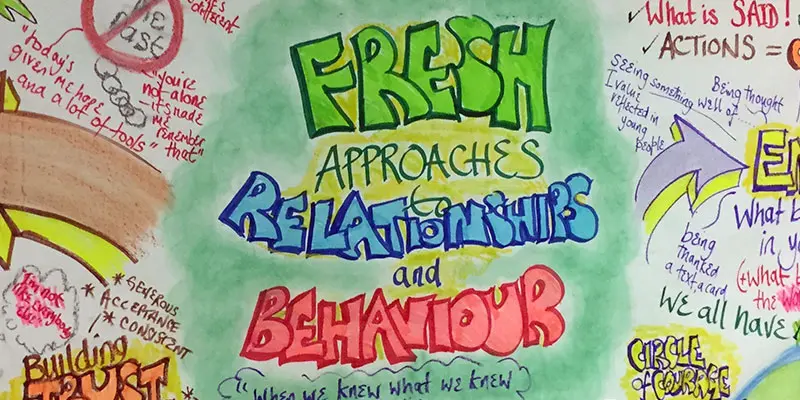 the
past
"today's
given me hope
and a lot of tools"
"you're
not alone
- it's made
me
remember
that"
FRESH
APPROACHES
to
RELATIONSHIPS
and
BEHAVIOUR
"When we knew what we knew
✓What is SAID!
✓ACTIONS =
Seeing something
I value
reflected in
young
people
Being thought
well of
What b
in y
(+what
the
We all have
being
thanked
a text, a card
I'm not
like everybody
else
* GENEROUS
* ACCEPTANCE
* CONSISTENT
Building
TRUST
CIRCLE
of COURAGE